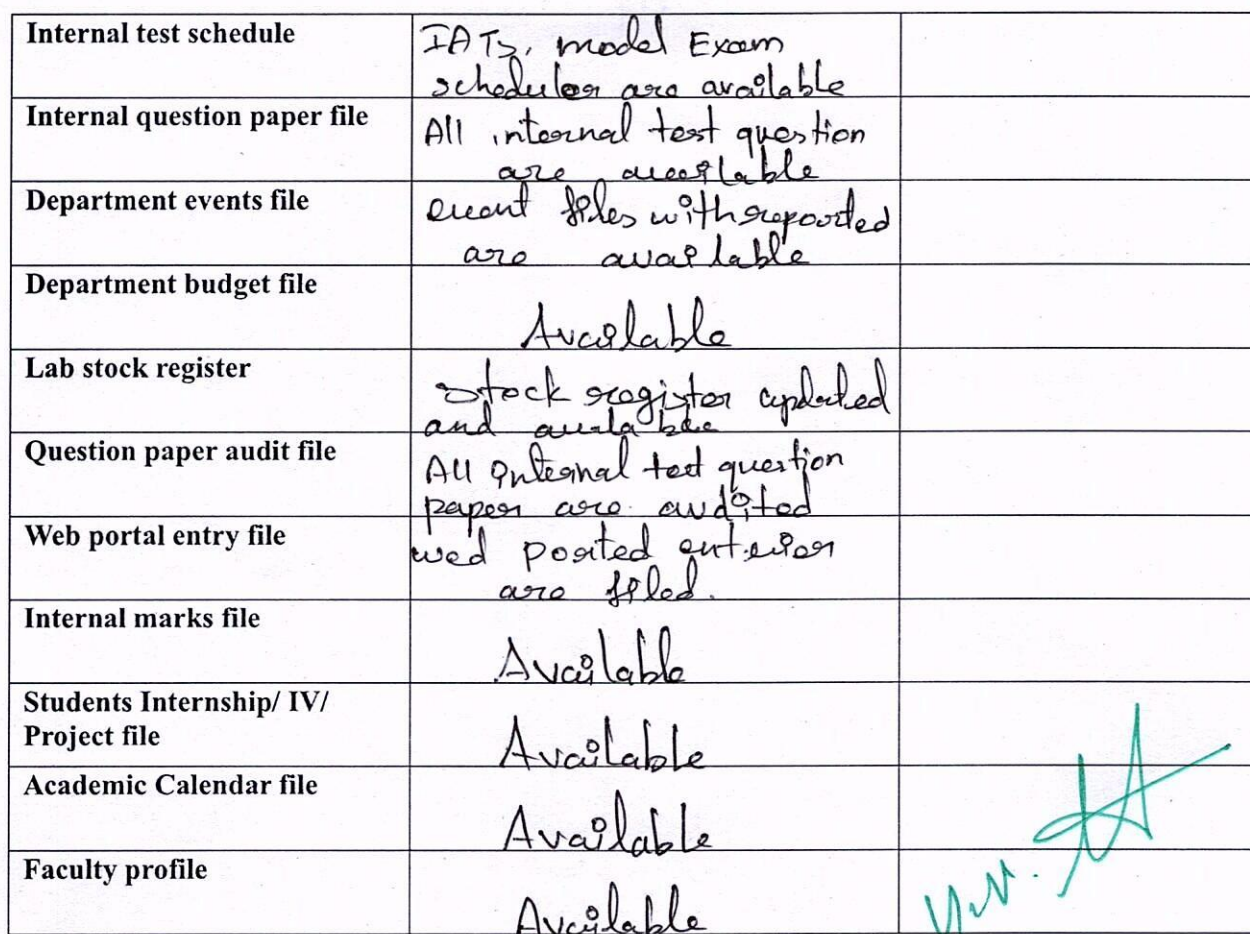 Internal test schedule
IATs, model Exam
schedules are available
Internal question paper file
All internal test question
are available
Department events file
event files with reported
are available
Department budget file
Available
Lab stock register
Stock register updated
and available
Question paper audit file
All internal test question
paper are audited
Web portal entry file
wed ported entries
are filed.
Internal marks file
Available
Students Internship/ IV/
Project file
Available
Academic Calendar file
Available
Faculty profile
Available